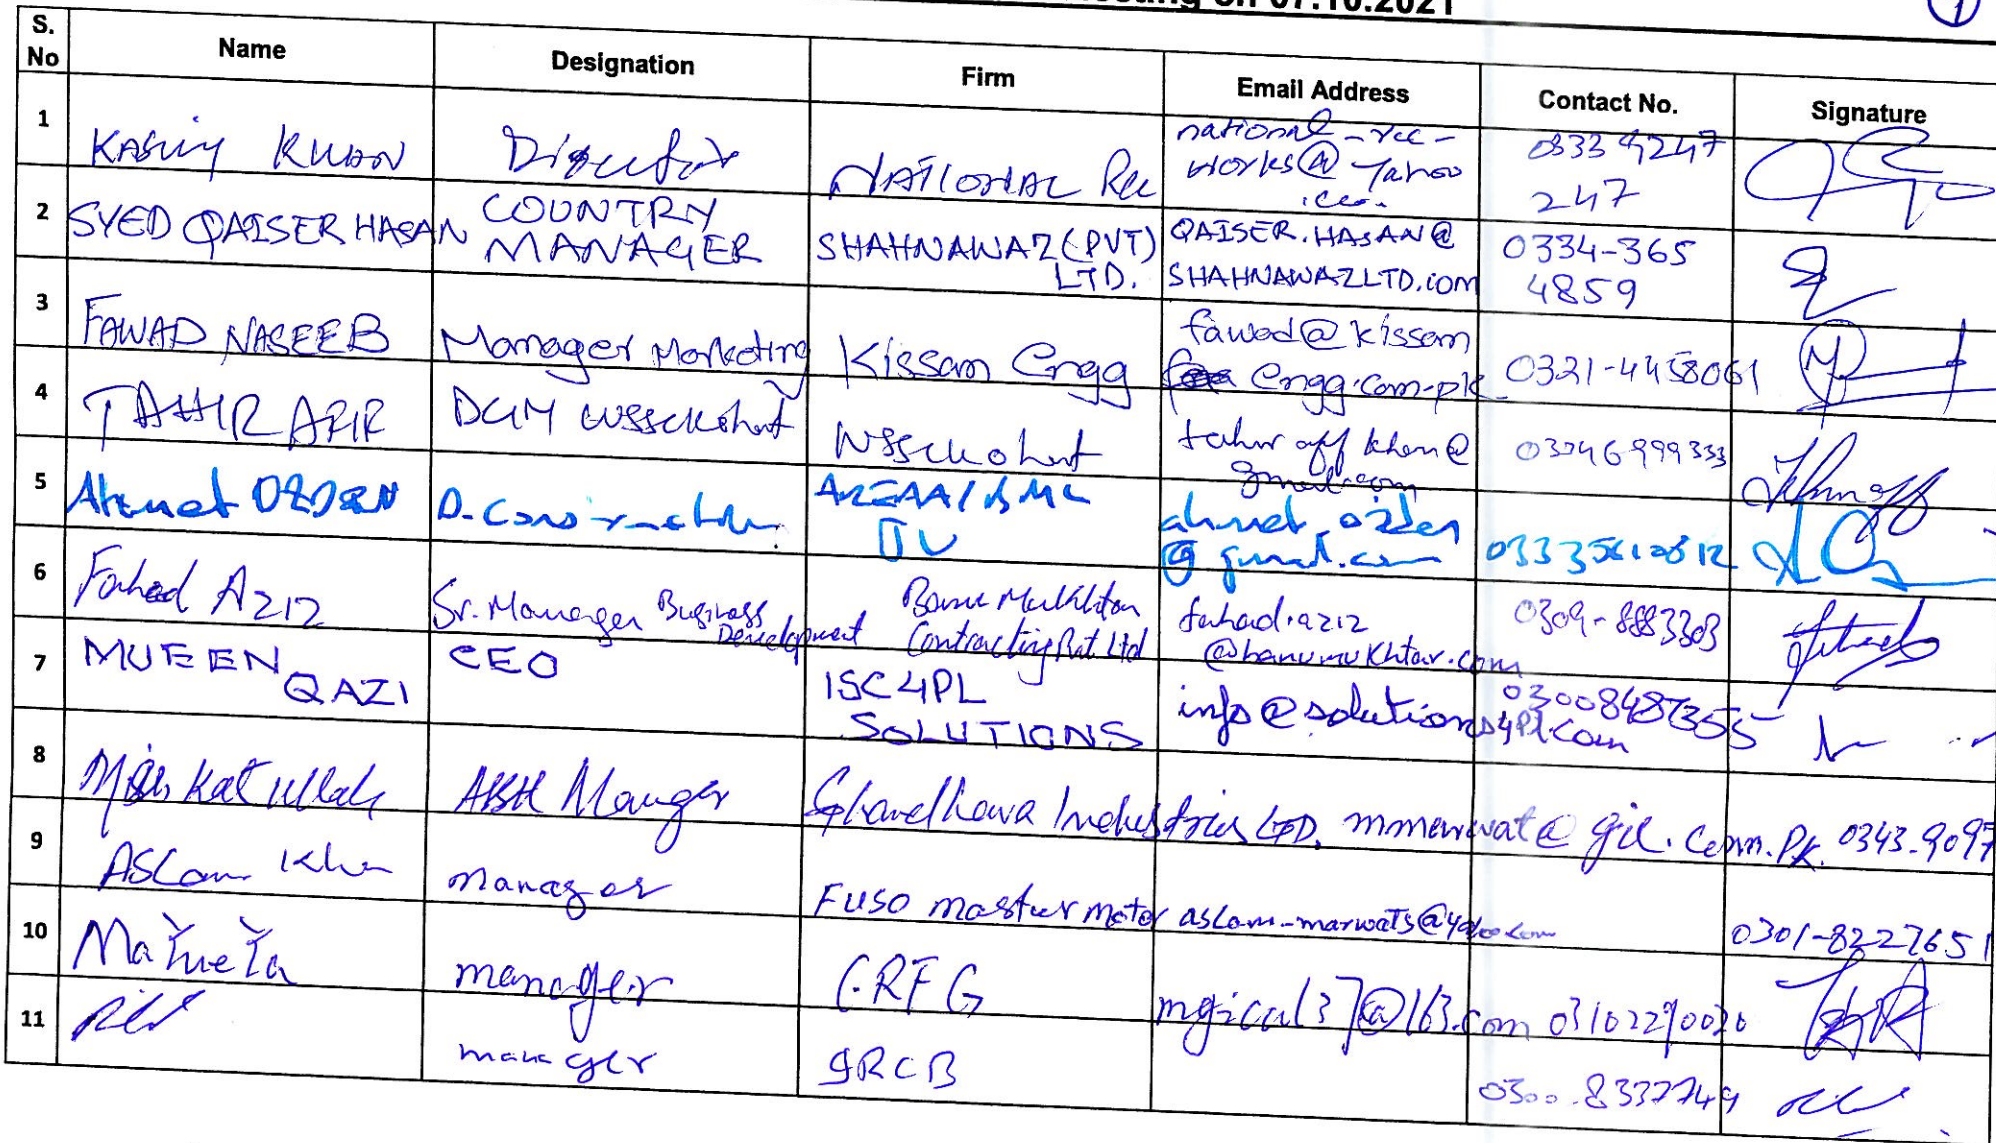 on 07.10.2021
1
S. No Name Designation Firm Email Address Contact No. Signature
1 KASHIY KHAN Director NATIONAL Rcc national-rcc-
works@ Yahoo
.com. 0333 9247
247
2 SYED QAISER HASAN COUNTRY
MANAGER SHAHNAWAZ (PVT)
LTD. QAISER.HASAN@
SHAHNAWAZLTD.COM 0334-365
4859
3 FAWAD NASEEB Manager Marketing Kissan Engg fawad@kissan
engg.com.pk 0321-4458061
4 TAHIR ARIF DGM WSSCKohat WSSCKohat @
gmail.com
5 Ahmet OZDEN D. Construction JV ahmet.ozden
@gmail.com
6 Fahad Aziz Sr. Manager Business
Development Banu Mukhtar
Contracting Pvt Ltd fahad.aziz
@banumukhtar.com 0309-8883303
7 MUEEN
QAZI CEO ISC4PL
SOLUTIONS info@solutions4pl.com 03008487355
8 Mishkatullah Manager Ghandhara Industries LTD. mmarwat@gil.com.pk. 0343-9097
9 Aslam Khan manager FUSO master motor aslam-marwats@yahoo.com 0301-8227651
10 manager CRFG @163.com 03102290020
11 manager 0300.8337749